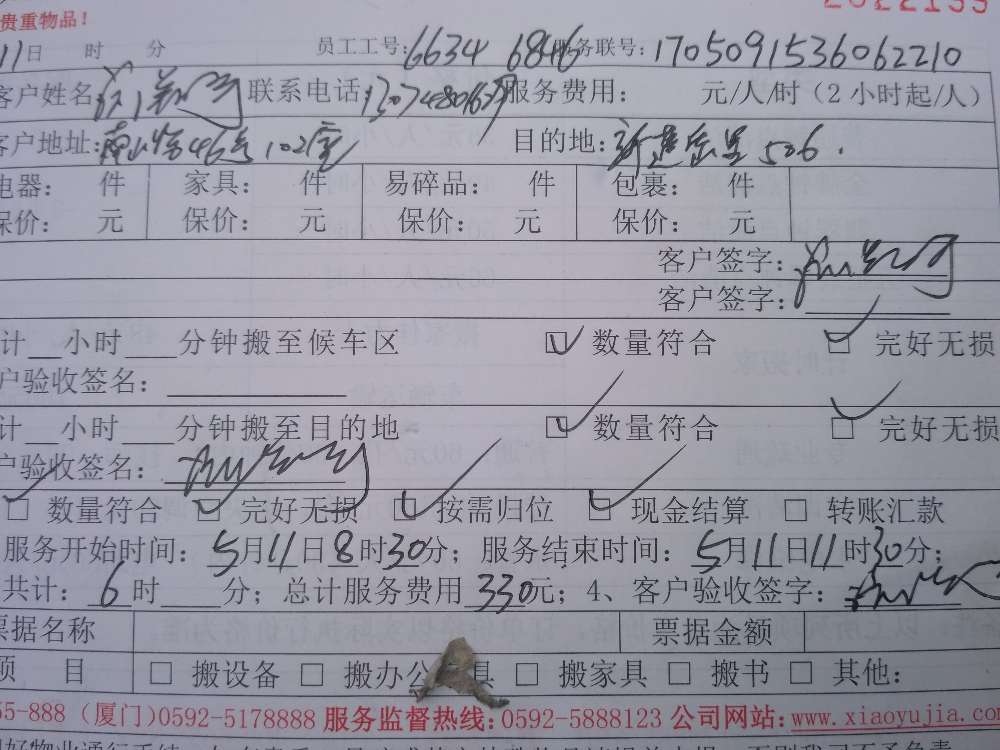 贵重物品！
11日 时 分 员工工号：6634 6846 服务联号：1705091536062210
客户姓名 联系电话： 服务费用： 元/人/时（2小时起/人）
客户地址：南山路46号102室 目的地： 506.
电器： 件 家具： 件 易碎品： 件 包裹： 件
保价： 元 保价： 元 保价： 元 保价： 元
客户签字：
客户签字：
计__小时___分钟搬至候车区 □ 数量符合 □ 完好无损
户验收签名：
计__小时___分钟搬至目的地 □ 数量符合 □ 完好无损
户验收签名：
□ 数量符合 □ 完好无损 □ 按需归位 □ 现金结算 □ 转账汇款
服务开始时间：5月11日8时30分；服务结束时间：5月11日11时30分；
共计：6时____分；总计服务费用330元；4、客户验收签字：
票据名称 票据金额
项 目 □ 搬设备 □ 搬办公 具 □ 搬家具 □ 搬书 □ 其他：
55-888（厦门）0592-5178888 服务监督热线：0592-5888123 公司网站：www.xiaoyujia.com